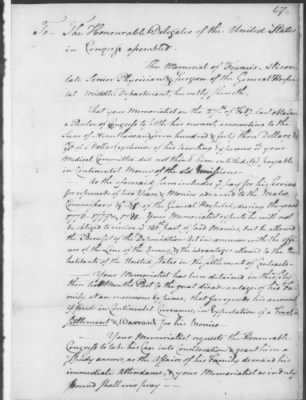 67.
To The Honourable Delegates of the United States
in Congress assembled.
The Memorial of Francis
late Senior Physician & Surgeon of the General Hospi-
tal Middle Department, humbly sheweth,
That your Memorialist on the 27th of Feb.y last obtain'd
a Resolve of Congress to
Sum of Nine thousand, nine hundred & forty three Dollars
of a Dollar exclusive of his
Medical Committee did not think him entitled to, payable
in Continental Money of the old Emissions.
As the aforesaid is pay for his Services
for upwards of two Years & Monies advanced to the
of the General Hospital, during the years
1778. 1779. & 1780. Your Memorialist hopes he will not
be obliged to receive of bad Money, but be allowed
the Benefit of the Depreciation in common with the offi-
cers of the Line of the Army, & the advantages allowed to the In-
habitants of the United States in the settlement of Contracts.
Your Memorialist has been detained in this City
then two Months Past to the great disadvantage of his Fa-
mily, at an enormous expence, that far exceeds his accounts
if paid in Continental Currency, in Expectation of a Final
Settlement & Warrant for his Monies.
Your Memorialist requests the Honourable
Congress to take his Case into Consideration & grant him a
speedy answer, as the Affairs of his Family demand his
immediate Attendance, & your Memorialist as in duty
bound shall ever pray